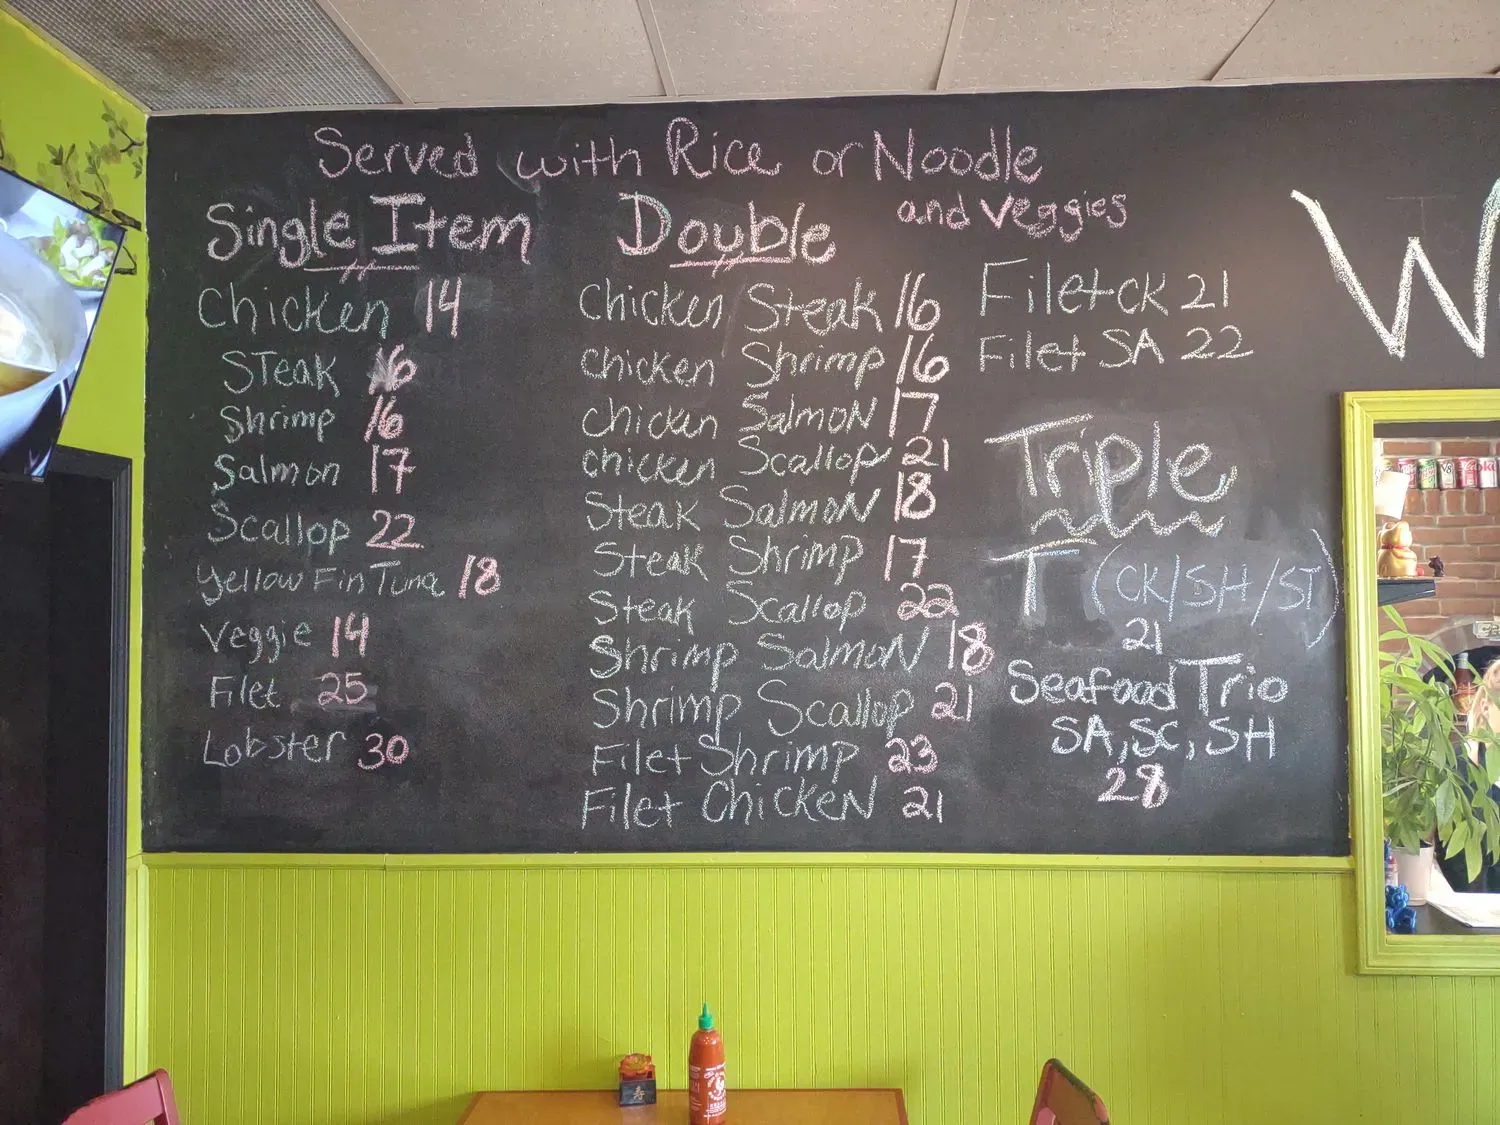 Served with Rice or Noodle
and veggies
Single Item
Chicken 14
STeak 16
Shrimp 16
Salmon 17
Scallop 22
Yellow Fin Tuna 18
Veggie 14
Filet 25
Lobster 30
Double
Chicken Steak 16
Chicken Shrimp 16
Chicken SalmoN 17
Chicken Scallop 21
Steak SalmoN 18
Steak Shrimp 17
Steak Scallop 22
Shrimp SalmoN 18
Shrimp Scallop 21
Filet Shrimp 23
Filet ChickeN 21
Filet CK 21
Filet SA 22
Triple
T (CK/SH/ST)
21
Seafood Trio
SA, SC, SH
28
W